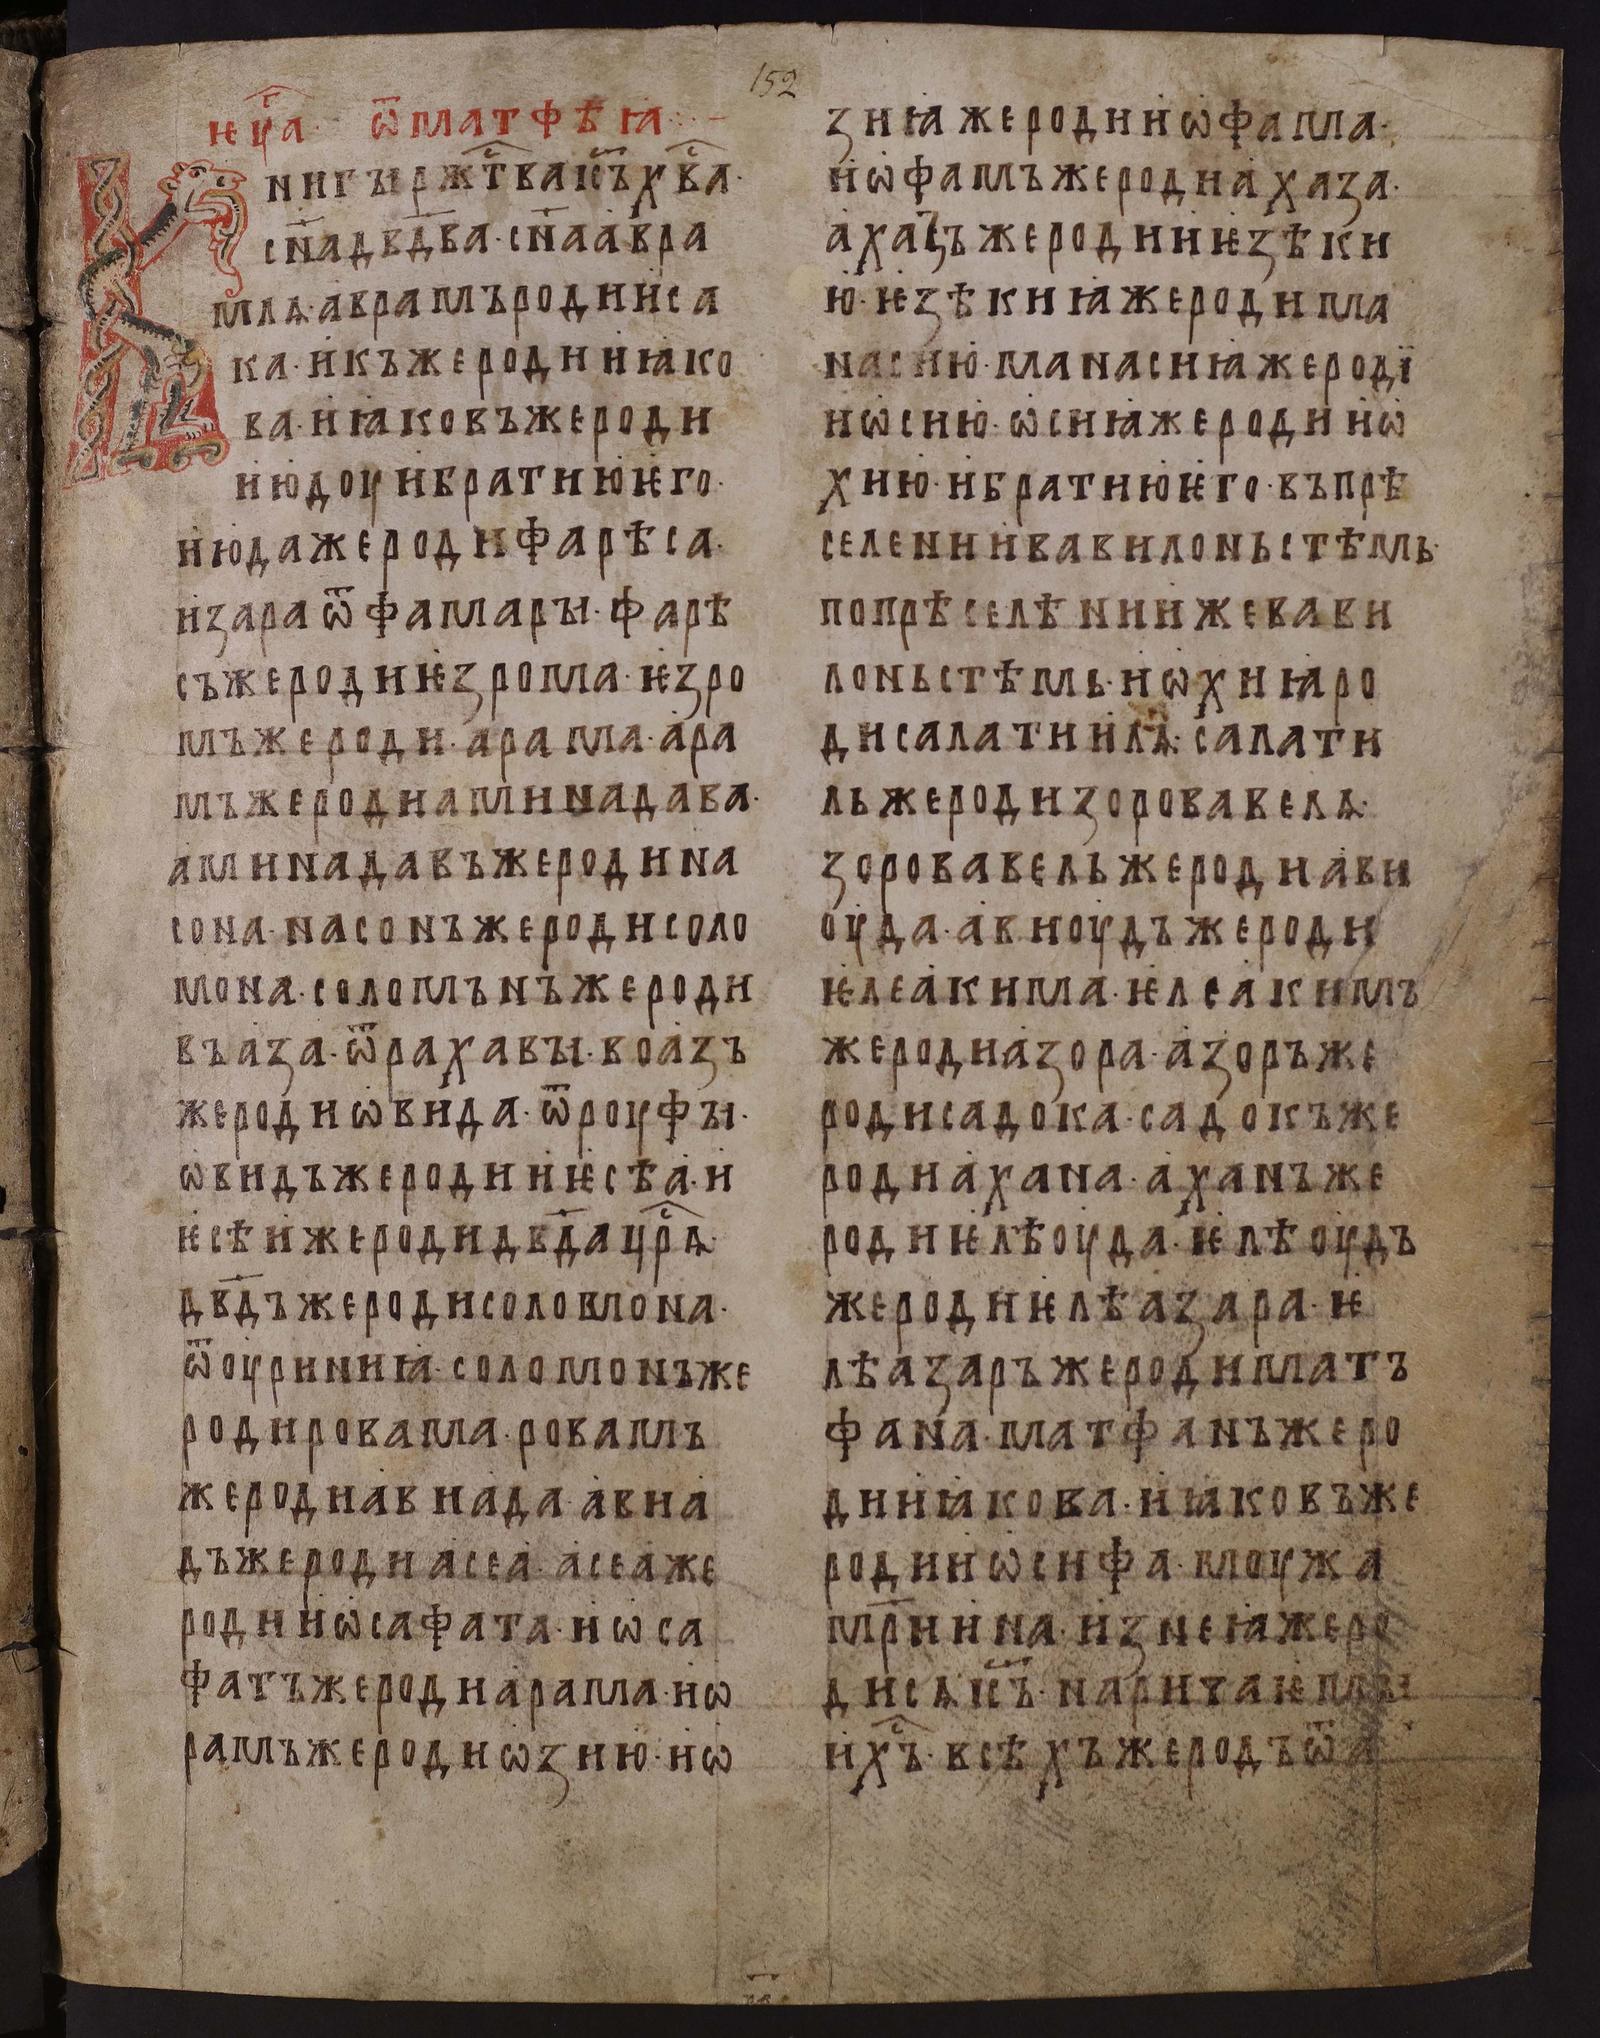 152
ѥѵⷭ҇а · ѿ матфѣꙗ · –
К
ниг꙯ы ржⷭ҇тва іс҃ъ хвⷭ҇а ·
сн҃а дв҃два · сн҃а авра
млѧ · авраамъ роди иса
ка · икъ же роди иꙗко
ва · иꙗковъ же роди
июдоу и братию ѥго ·
июда же роди фарѣса ·
и зара ѿ фамары · фарѣ
съ же роди ѥзрома · ѥзро
мъ же роди · арама · ара
мъ же роди аминадава ·
аминадавъ же роди на
сона · насонъ же роди соло
мона · соломънъ же роди
въаза · ѿ рахавы · воазъ
же роди ѡвида · ѿ роуфы ·
ѡвидъ же роди иѥсѣа · и
ѥсѣи же роди двд҃а црⷭ҇ѧ ·
двд҃ъ же роди соломона ·
ѿ оуринниꙗ · соломонъ же
роди ровама · ровамъ
же роди авиада · авиа
дъ же роди асеа · асеа же
роди иѡсафата · иѡса
фатъ же роди арама · иѡ
рамъ же роди ѡзию · иѡ
зиꙗ же роди иѡфама ·
иѡфамъ же роди ахаза ·
ахазъ же роди иѥзѣки
ю · ѥзѣкиꙗ же роди ма
насию · манасиꙗ же родї
иѡсию · ѡсиꙗ же роди иѡ
хию · и братию ѥго · въ прѣ
селении вавилоньстѣмь ·
по прѣселѣнии же вави
лоньстѣмь · иѡхиꙗ ро
ди салатиилѧ · салати
ль же роди зоровавелѧ ·
зоровавель же роди ави
оуда · авиоудъ же роди
ѥлеакима · ѥлеакимъ
же роди азора · азоръ же
роди садока · садокъ же
роди ахана · аханъ же
роди ѥлѣоуда · ѥлѣоудъ
же роди ѥлѣазара · ѥ
лѣазаръ же роди матъ
фана · матфанъ же ро
ди иꙗкова · иꙗковъ же
роди иѡсифа · моужа
мр҃иина · из неꙗ же ро
ди сѧ іс҃ъ · нарицаѥмꙑ
и хⷭ҇ъ · всѣхъ же родъ ѿ а